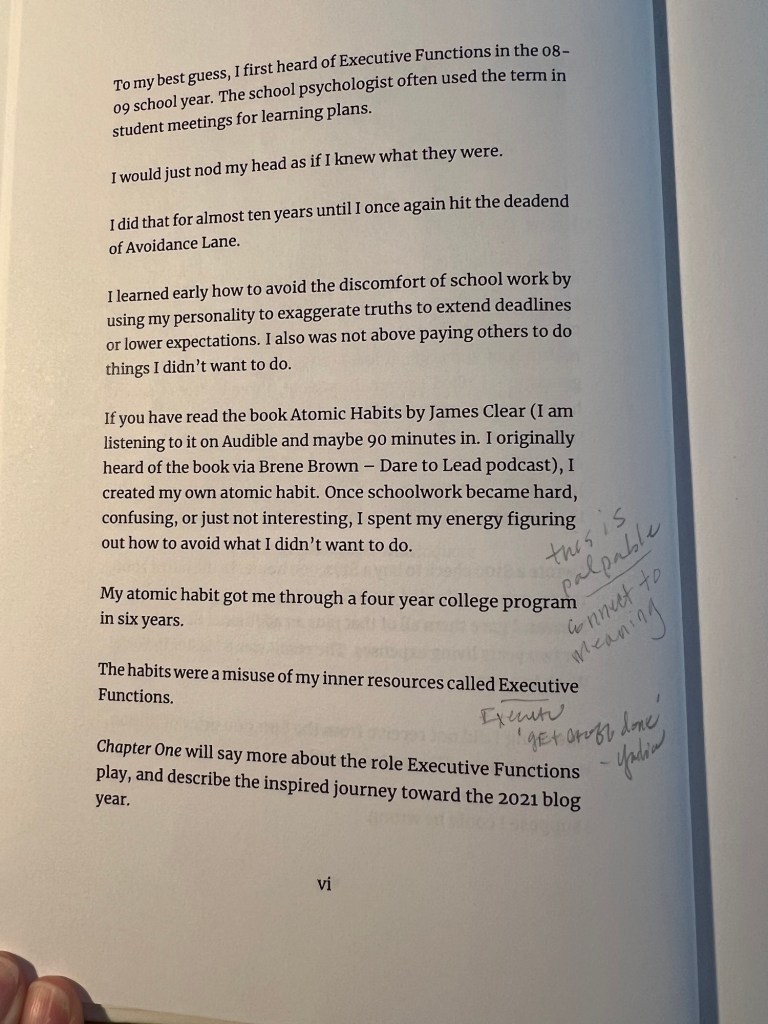 To my best guess, I first heard of Executive Functions in the 08-
09 school year. The school psychologist often used the term in
student meetings for learning plans.
I would just nod my head as if I knew what they were.
I did that for almost ten years until I once again hit the deadend
of Avoidance Lane.
I learned early how to avoid the discomfort of school work by
using my personality to exaggerate truths to extend deadlines
or lower expectations. I also was not above paying others to do
things I didn't want to do.
If you have read the book Atomic Habits by James Clear (I am
listening to it on Audible and maybe 90 minutes in. I originally
heard of the book via Brene Brown – Dare to Lead podcast), I
created my own atomic habit. Once schoolwork became hard,
confusing, or just not interesting, I spent my energy figuring
out how to avoid what I didn't want to do.
this is
palpable
connect to
meaning
My atomic habit got me through a four year college program
in six years.
The habits were a misuse of my inner resources called Executive
Functions.
Execute
'GET stuff done'
Chapter One will say more about the role Executive Functions
play, and describe the inspired journey toward the 2021 blog
year.
vi